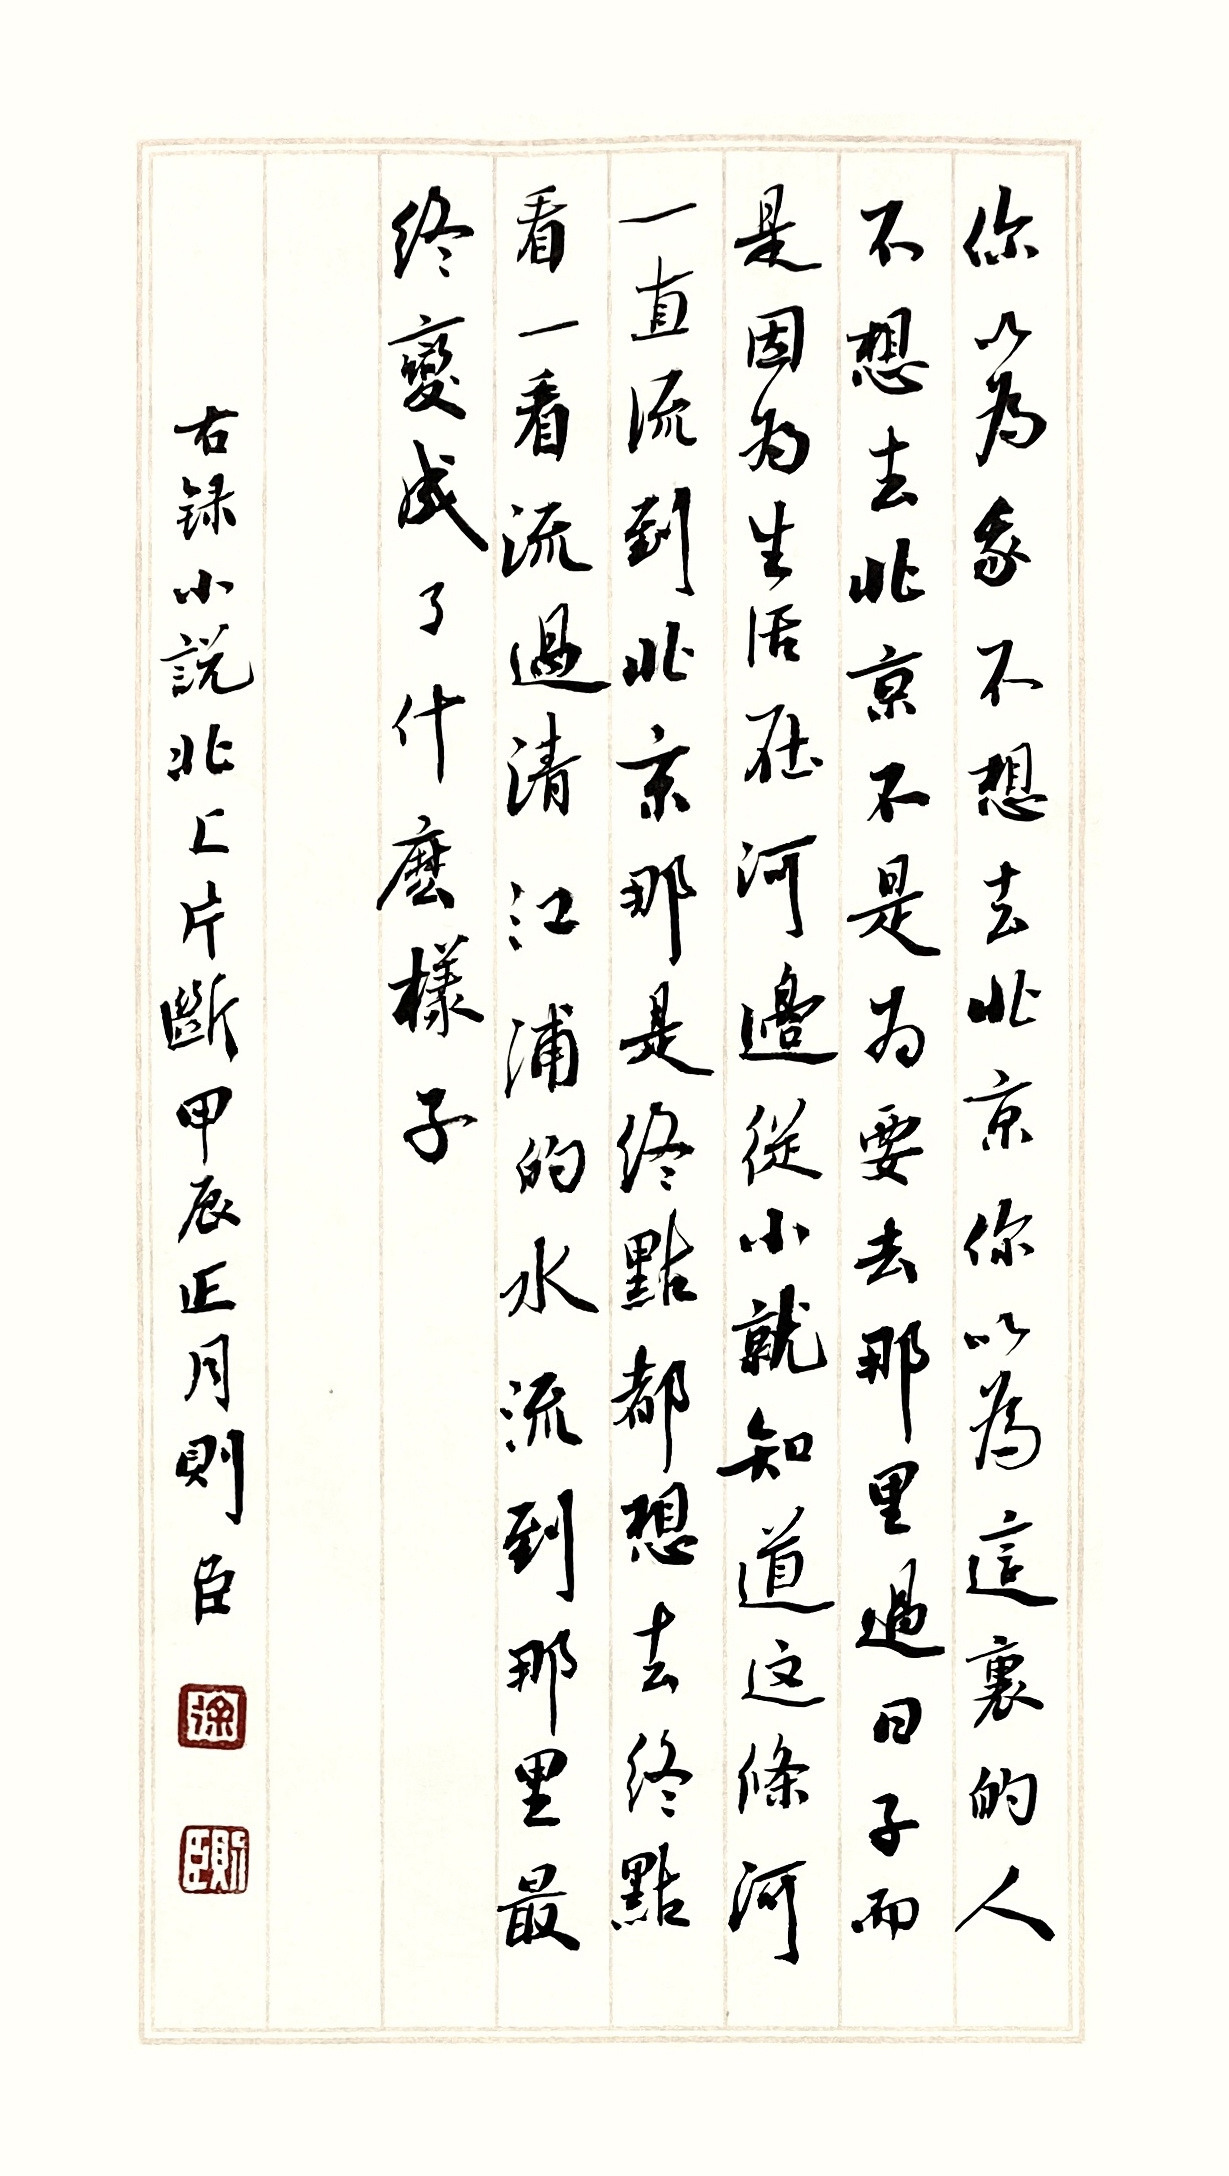 你以为我不想去北京你以為這裏的人
不想去北京不是为要去那里過日子而
是因为生活在河邊從小就知道这條河
一直流到北京那是終點都想去終點
看一看流過清江浦的水流到那里最
终變成了什麽樣子
右録小説北上片斷甲辰正月則臣
徐
則臣